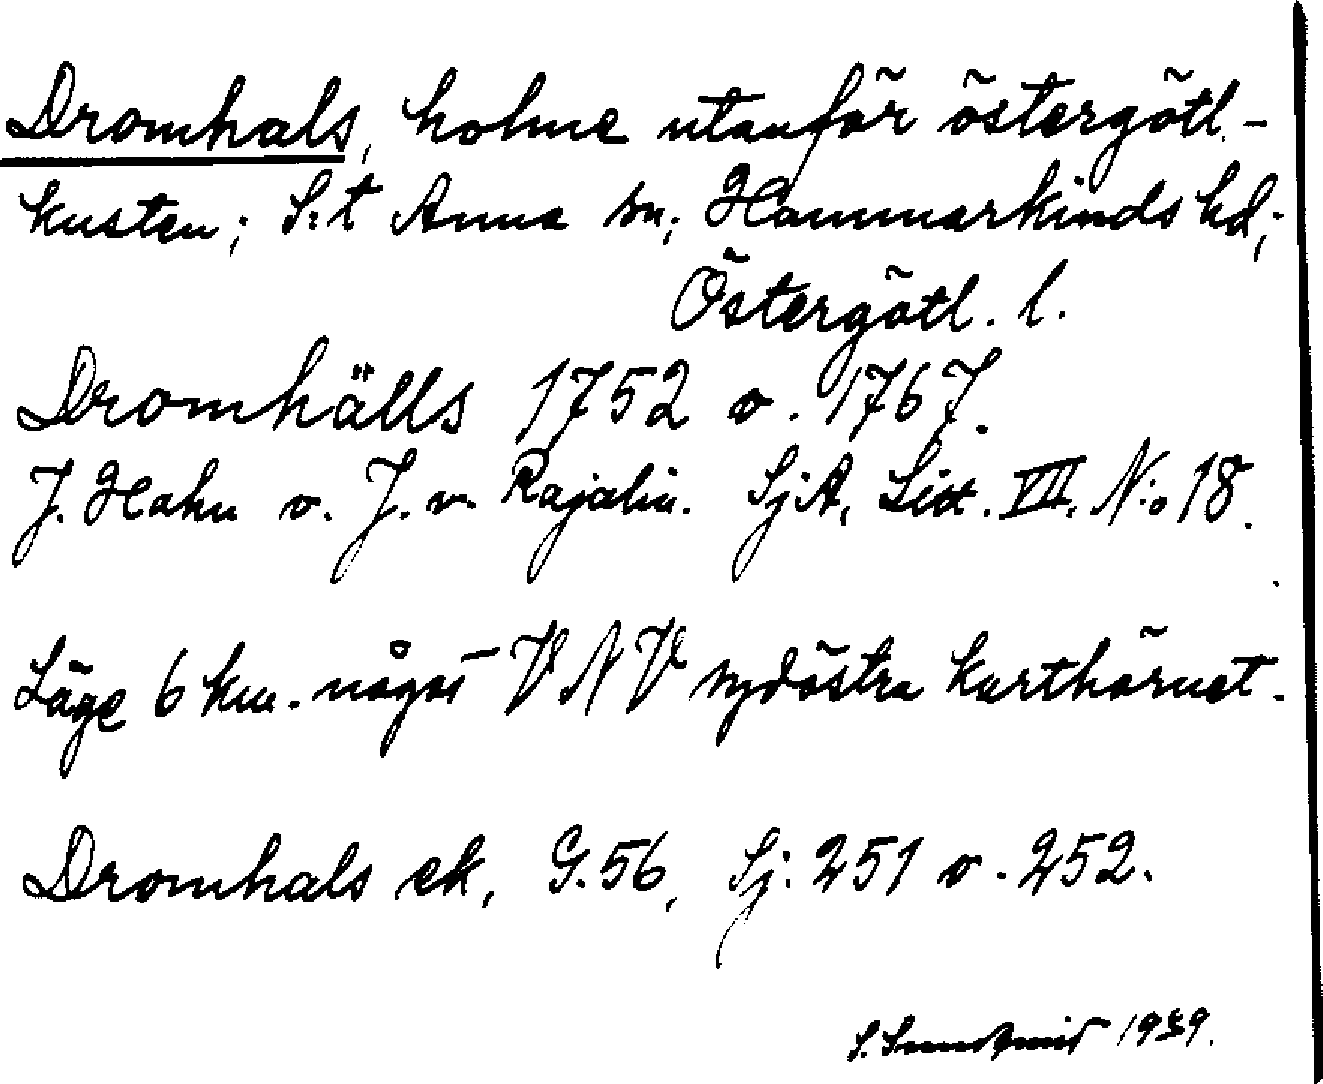 Dromhals, holme utanför östergötl.-
kusten; S:t Anna sn; Hammarkinds hd;
Östergötl. l.
Dromhälls 1752 o. 1767.
J. Hahn o. J. v. Rajalin. SjA, Litt. VII, N:o 18.
Läge 6 km. något VNV sydöstra karthörnet.
Dromhals ek, G. 56, Sj. 251 o. 252.
S. 1939.